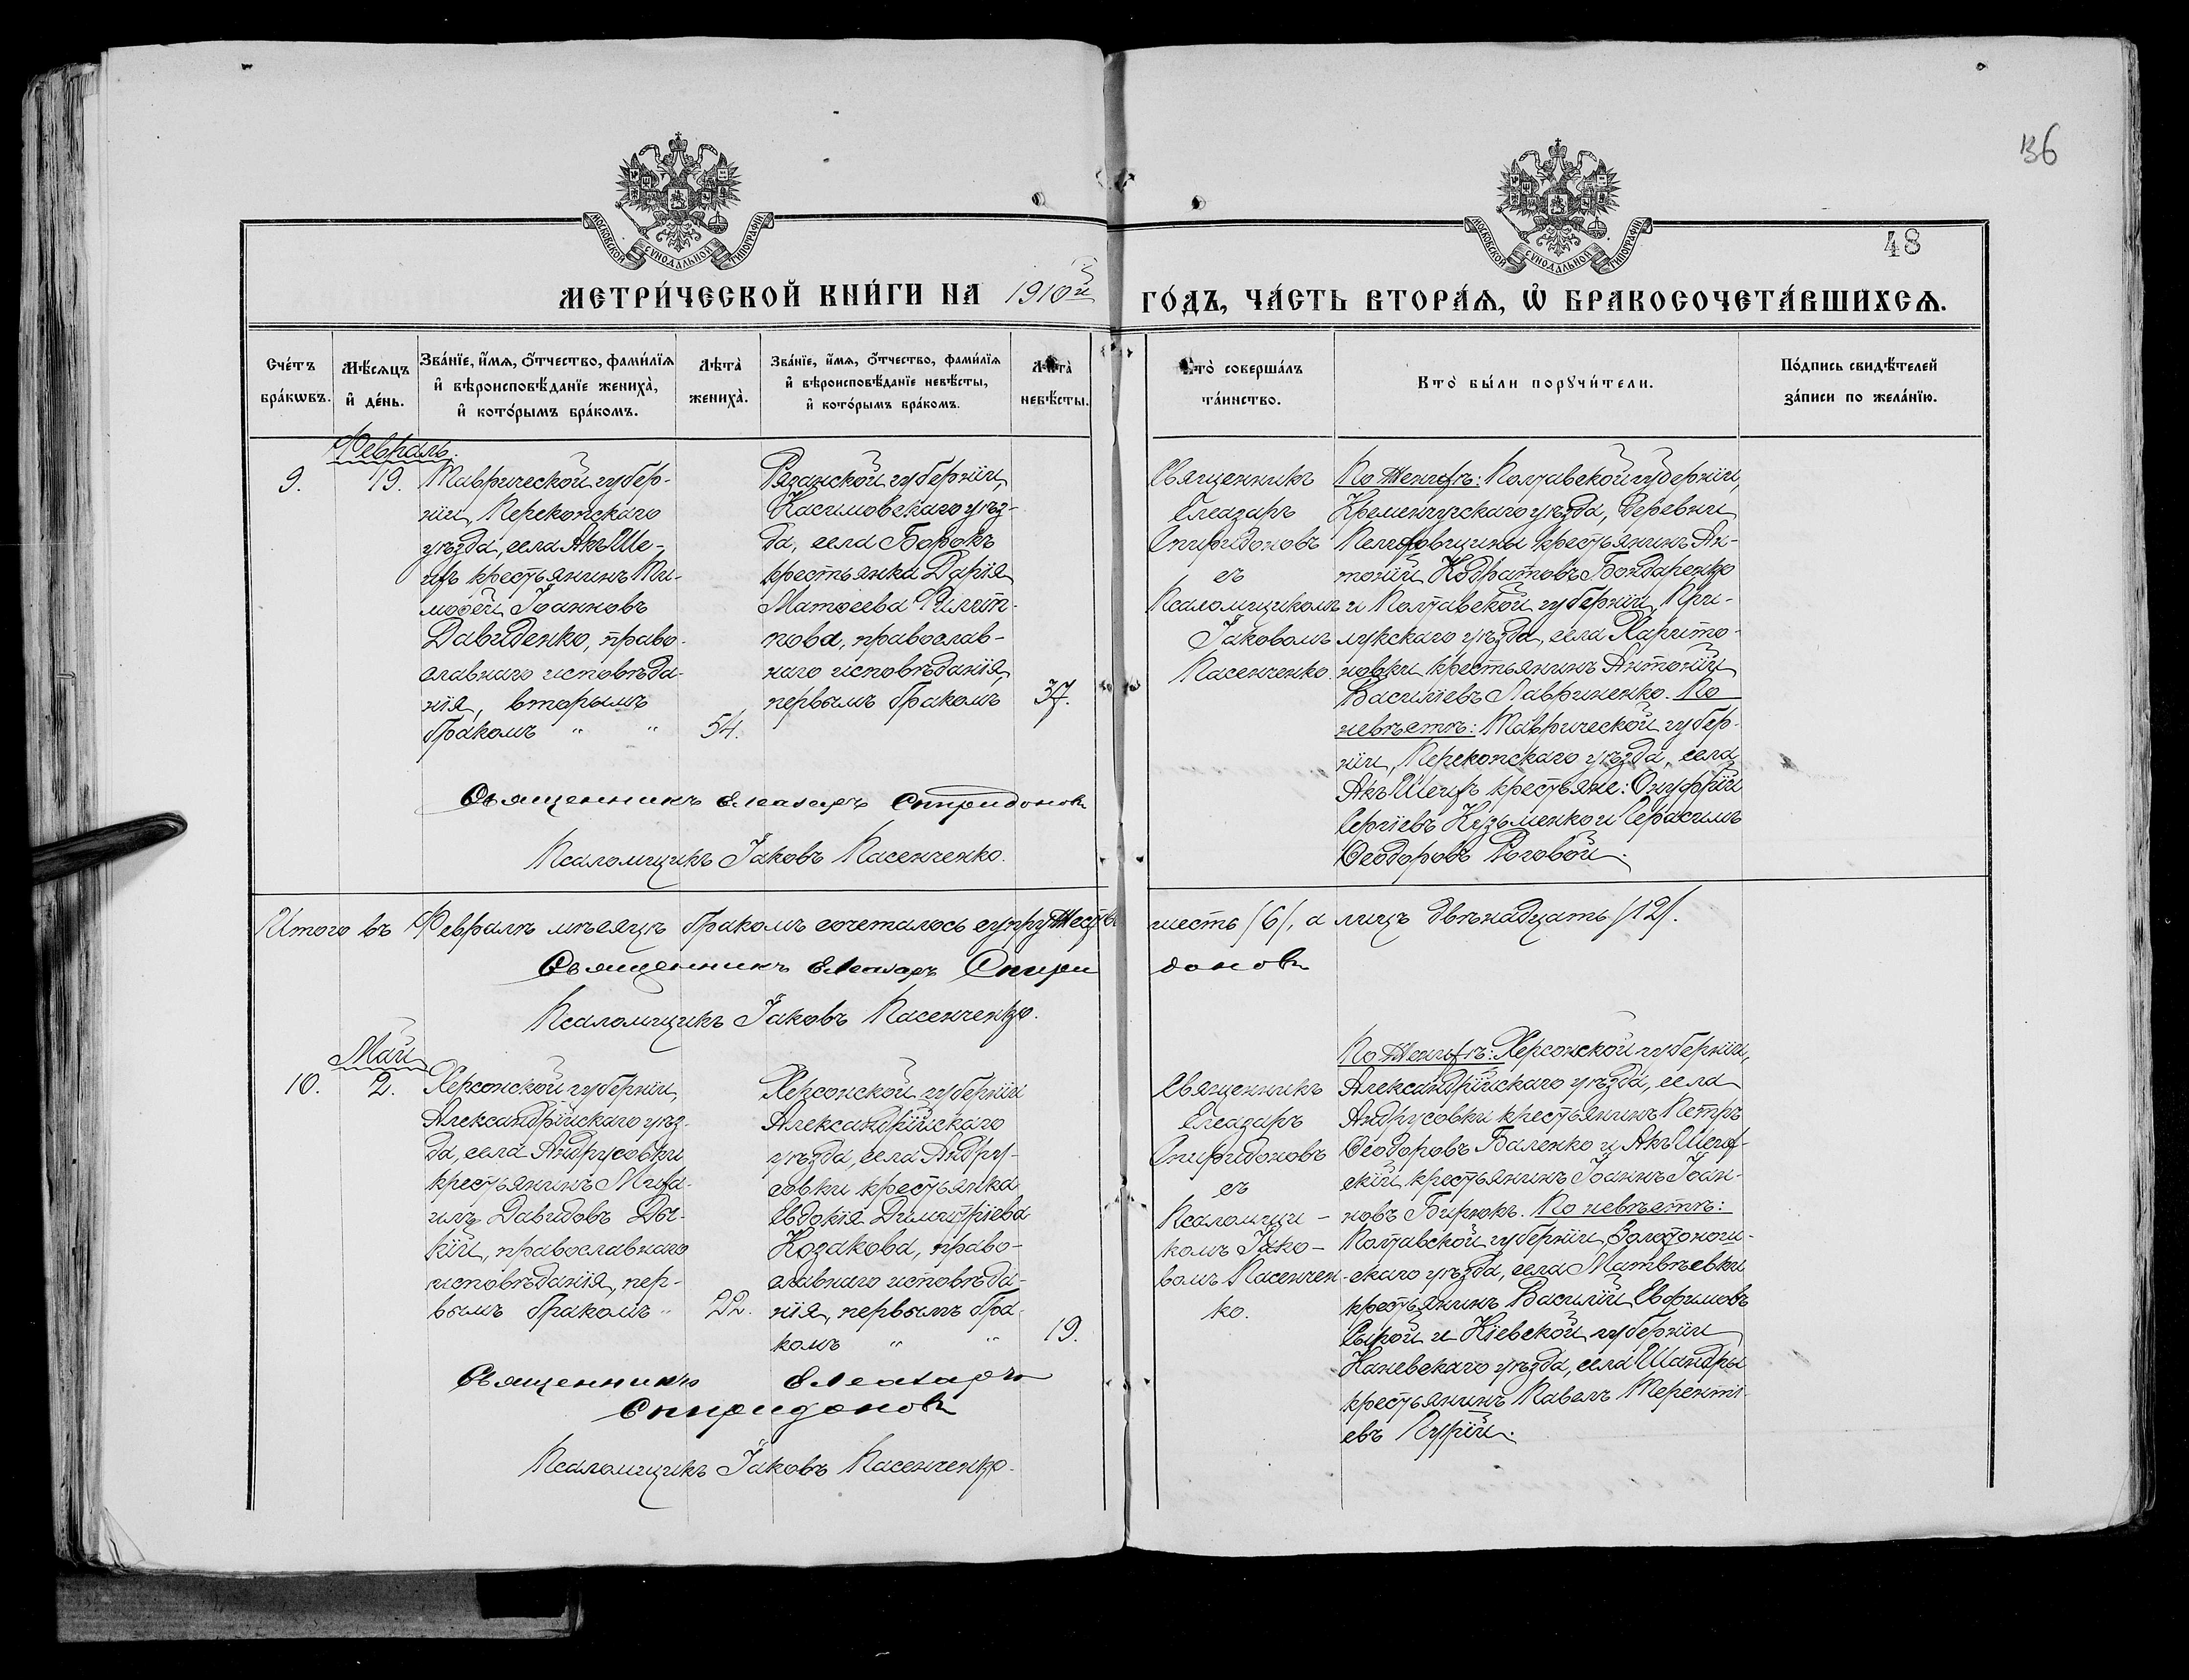 136
МОСКОВСКОЙ СѴНОДАЛЬНОЙ ТИПОГРАФІИ
МОСКОВСКОЙ СѴНОДАЛЬНОЙ ТИПОГРАФІИ
48
МЕТРИ́ЧЕСКОЙ КНИ́ГИ НА 1910й ГО́ДЪ, ЧА́СТЬ ВТОРА́Ѧ, Ѡ҆ БРАКОСОЧЕТА́ВШИХСѦ.
Сче́тъ бра́кѡвъ.
Мѣ́сѧцъ и҆ де́нь.
Зва́нїе, и҆́мѧ, ѻ҆́тчество, фами́лїѧ
и҆ вѣроисповѣ́данїе жениха̀,
и҆ кото́рымъ бра́комъ.
Лѣта̀ жениха̀.
Зва́нїе, и҆́мѧ, ѻ҆́тчество, фами́лїѧ
и҆ вѣроисповѣ́данїе невѣ́сты,
и҆ кото́рымъ бра́комъ.
Лѣта̀ невѣ́сты.
Кто̀ соверша́лъ
та́инство.
Кто̀ бы́ли порꙋчи́тели.
По́дпись свидѣ́телей
за́писи по жела́нїю.
Февраль.
9.
19.
Таврической губер-
ніи, Перекопскаго
уѣзда, села Акъ Ше-
ихъ крестьянинъ Ти-
моѳей Іоанновъ
Давиденко, право-
славнаго исповѣда-
нія, вторымъ
бракомъ " "
54.
Рязанской губерніи,
Касимовскаго уѣз-
да, села Борокъ
крестьянка Дарія
Матѳеева Филип-
пова, православ-
наго исповѣданія
первымъ бракомъ
37.
Священникъ
Елеазаръ
Спиридоновъ
съ
Псаломщикомъ
Іаковомъ
Пасенченко.
По женихѣ: Полтавской губерніи,
Кременчугскаго уѣзда, деревни
крестьянинъ Ан-
тоній Кодратовъ Бондаренко
и Полтавской губерніи, При-
лукскаго уѣзда, села Харито-
новки крестьянинъ Антоній
Василіевъ Лавриненко. По
невѣстѣ: Таврической губер-
ніи, Перекопскаго уѣзда, села
Акъ Шеихъ крестьяне: Онуфрій
Сергіевъ Кузьменко и Герасимъ
Ѳеодоровъ Роговой.
Священникъ Елеазаръ Спиридоновъ
Псаломщикъ Іаковъ Пасенченко.
Итого въ Февралѣ мѣсяцѣ бракомъ сочеталось супружествъ шесть /6/, а лицъ двѣнадцать /12/.
Священникъ Елеазаръ Спиридоновъ
Псаломщикъ Іаковъ Пасенченко.
Май
10.
2.
Херсонской губерніи,
Александрійскаго уѣз-
да, села Андрусовки
крестьянинъ Миха-
илъ Давидовъ
кій, православнаго
исповѣданія, пер-
вымъ бракомъ "
22.
Херсонской губерніи
Александрійскаго
уѣзда, села Андру-
совки крестьянка
Евдокія Димитріева
Козакова, право-
славнаго исповѣда-
нія, первымъ бра-
комъ " "
19.
Священникъ
Елеазаръ
Спиридоновъ
съ
Псаломщи-
комъ Іако-
вомъ Пасенчен-
ко.
По женихѣ: Херсонской губерніи,
Александрійскаго уѣзда, села
Андрусовки крестьянинъ Петръ
Ѳеодоровъ Баленко и Акъ Шеих-
скій крестьянинъ Іоаннъ Іоан-
новъ Бирюкъ. По невѣстѣ:
Полтавской губерніи, Золотонош-
скаго уѣзда, села Матвѣевки
крестьянинъ Василій Евфимовъ
Сырой и Кіевской губерніи
Каневскаго уѣзда, села Шандры
крестьянинъ Павелъ Теренті-
евъ
Священникъ Елеазаръ
Спиридоновъ
Псаломщикъ Іаковъ Пасенченко.